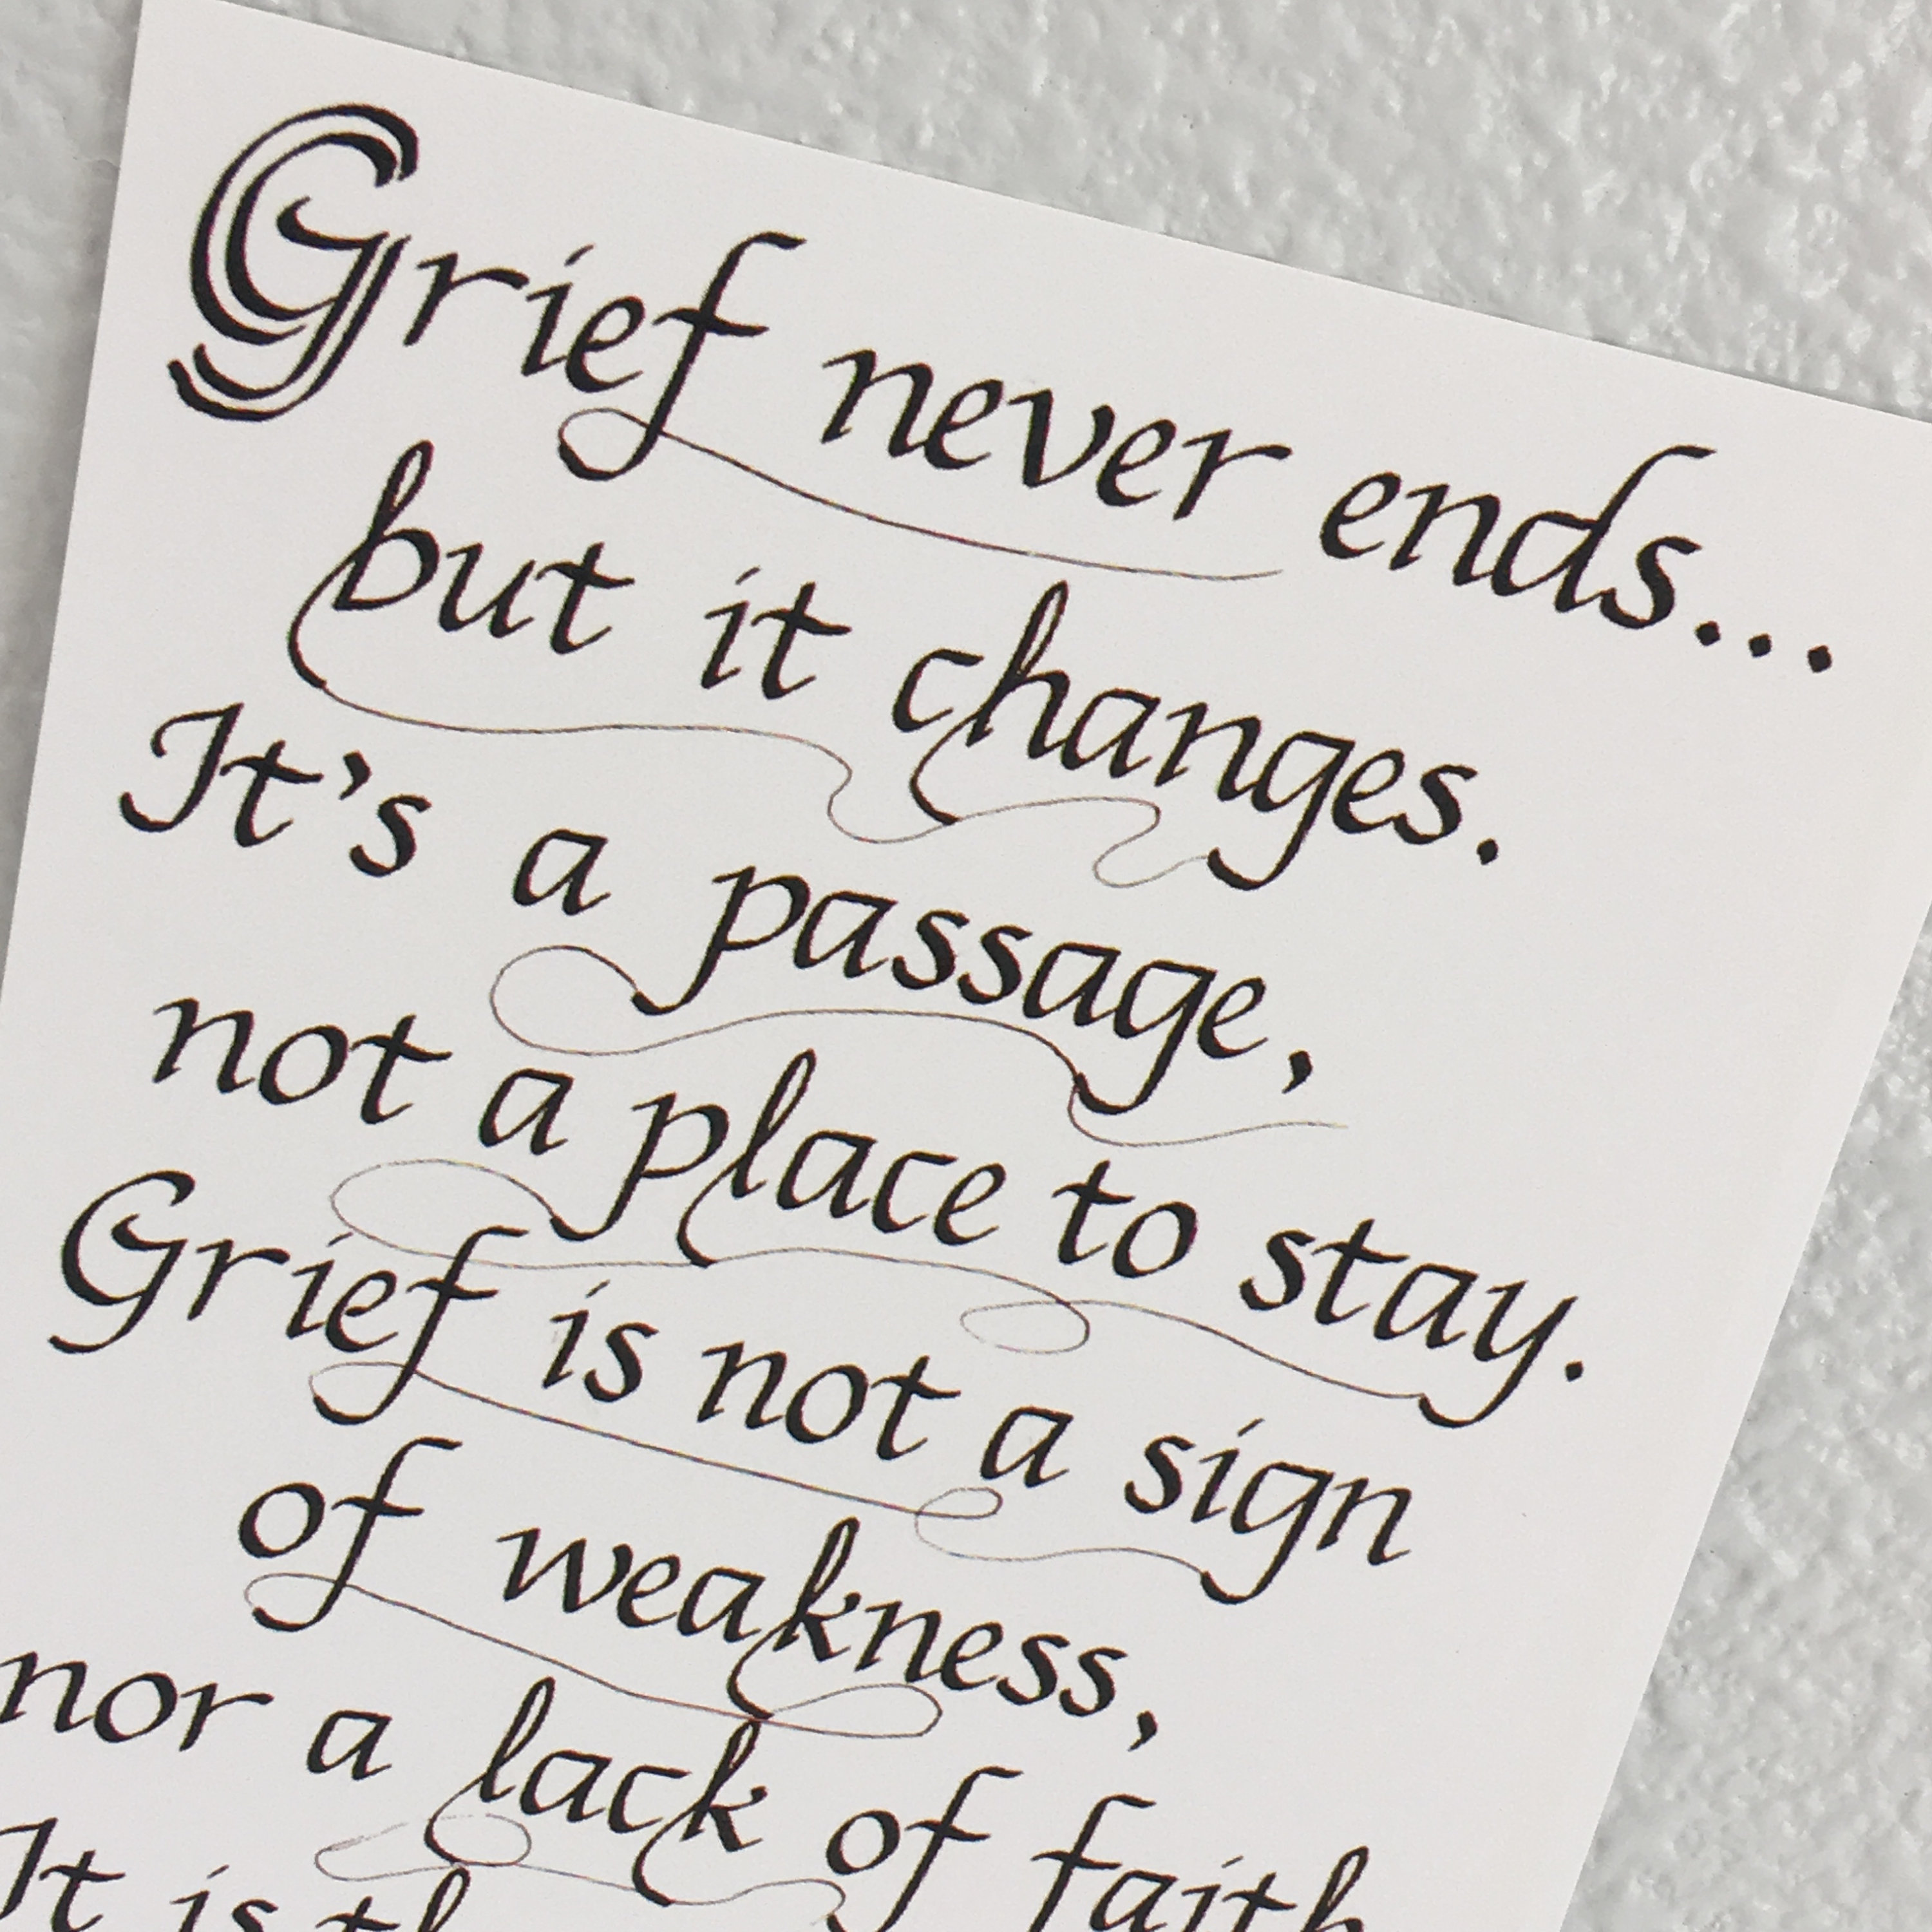 Grief never ends...
but it changes.
It's a passage,
not a place to stay.
Grief is not a sign
of weakness,
nor a lack of faith
It is